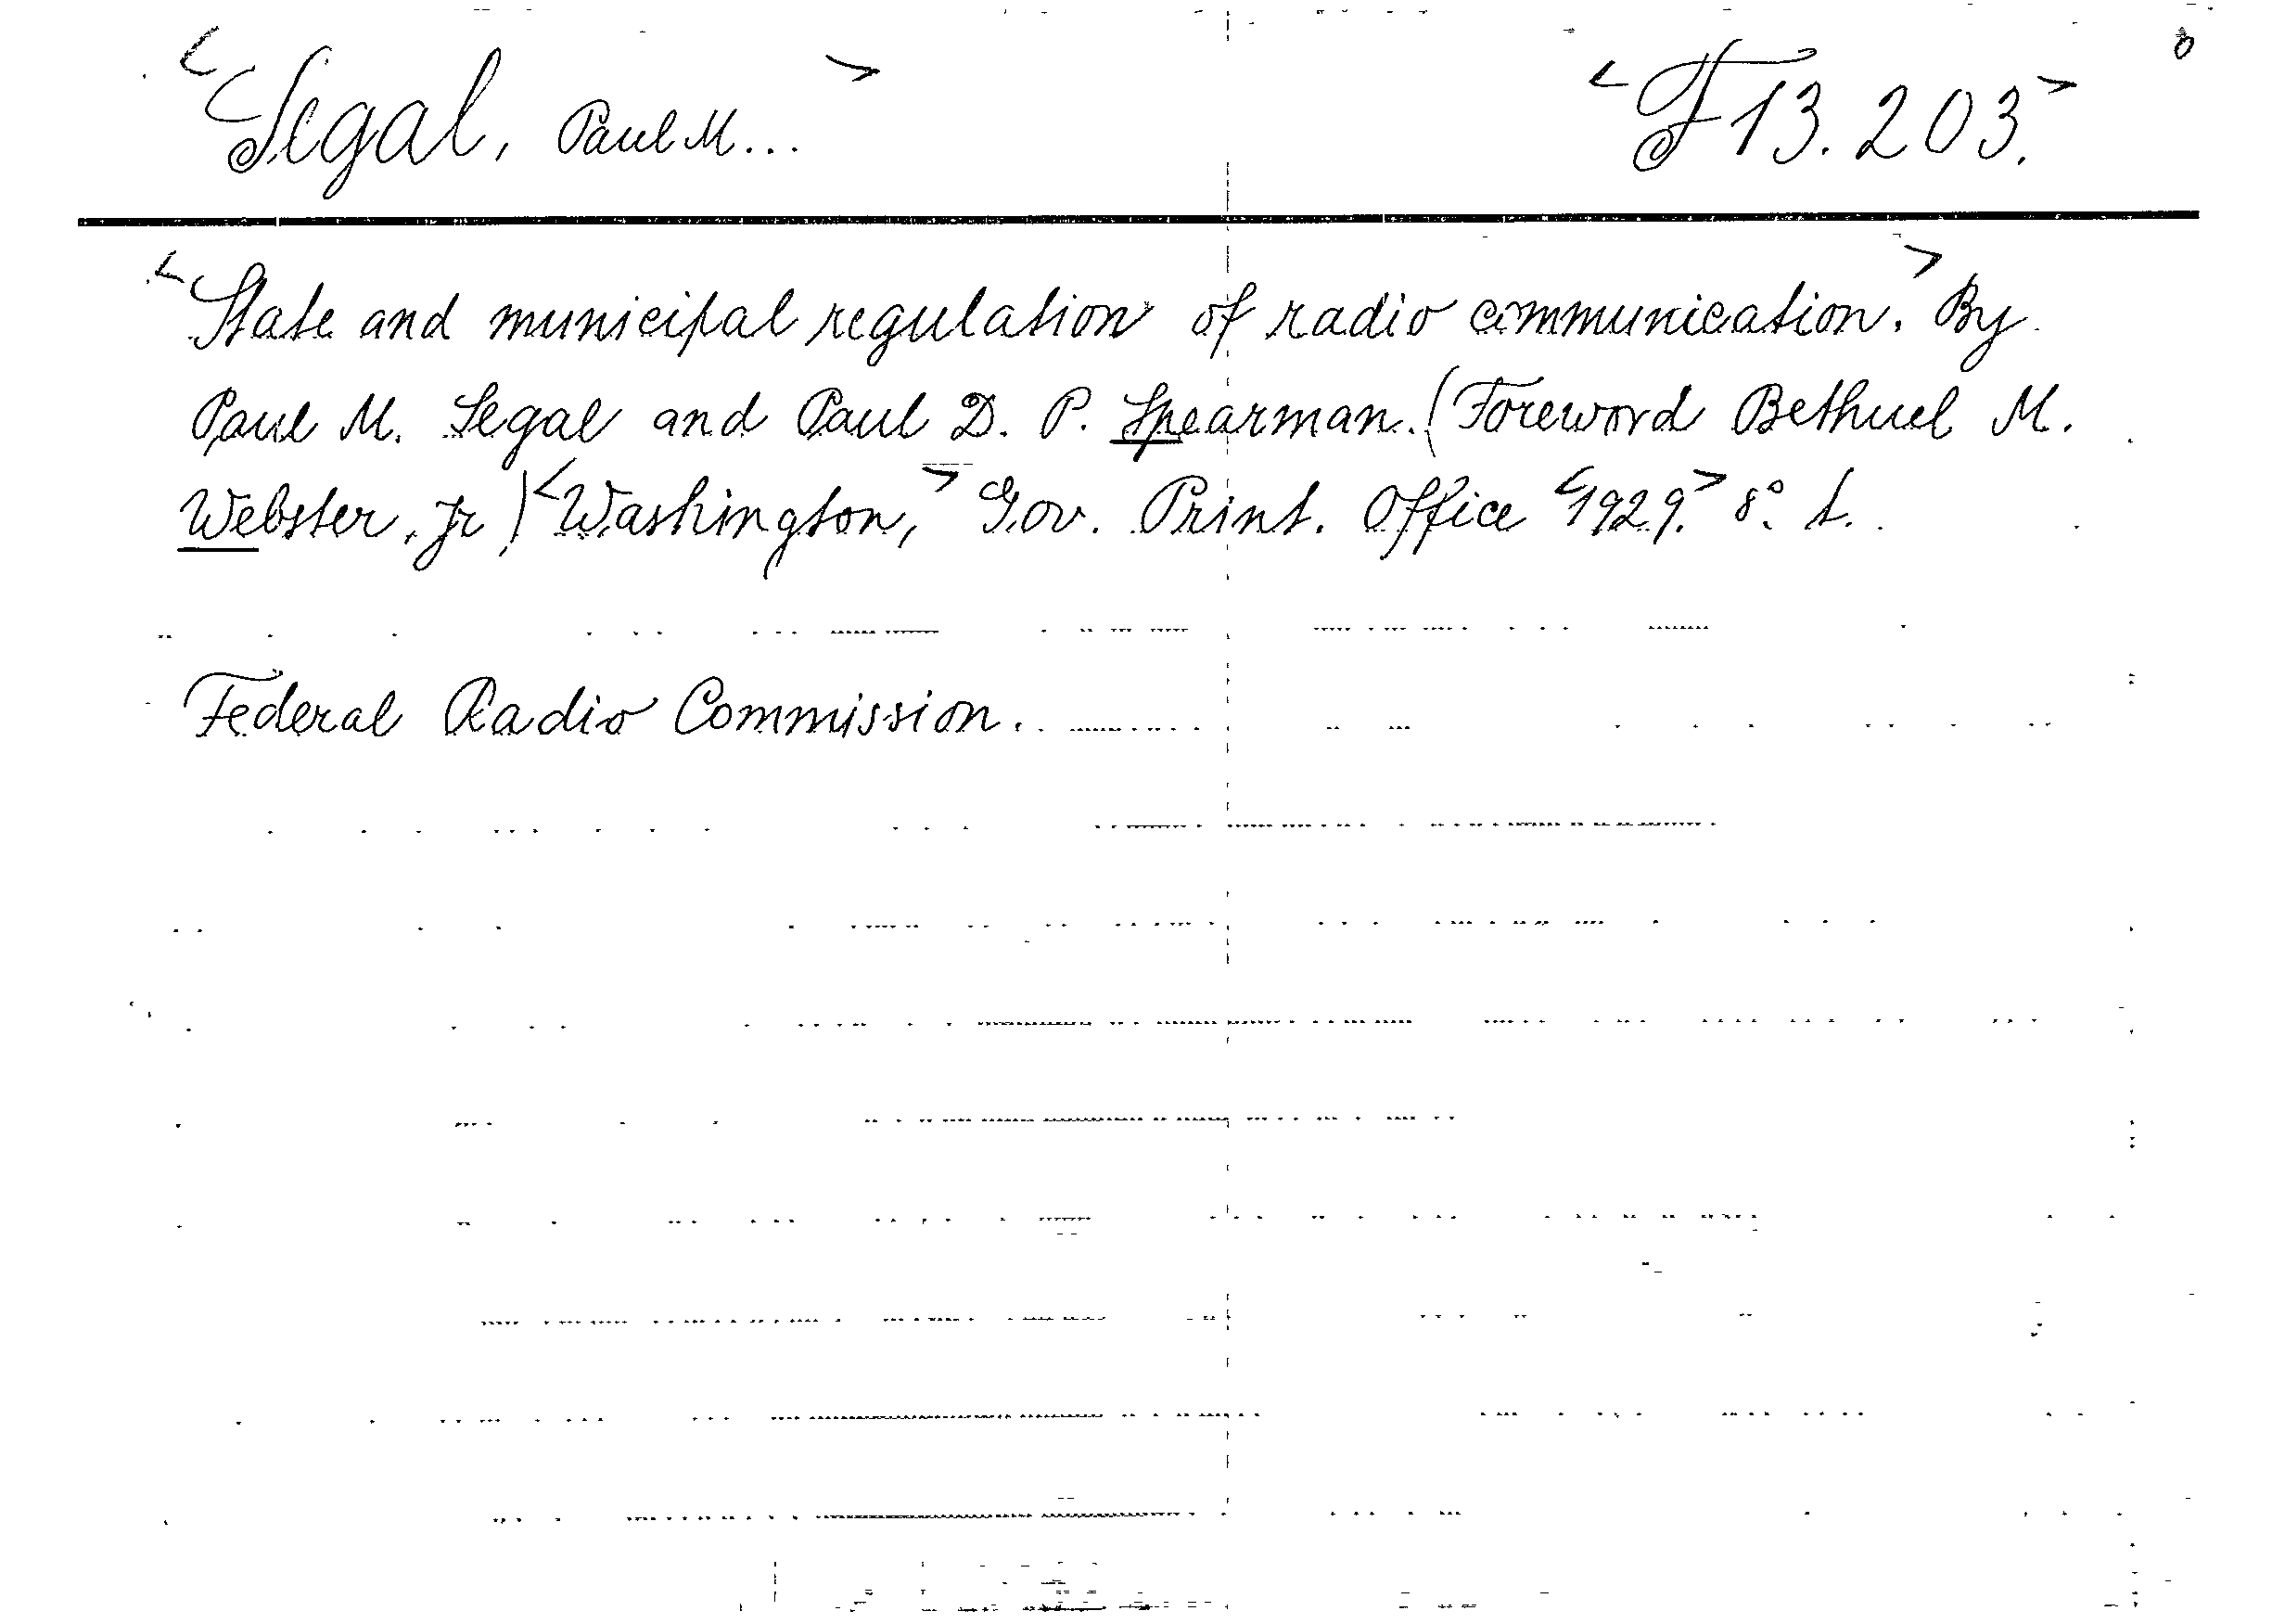 <Segal, Paul M...> <F 13.203.>
<State and municipal regulation of radio communication.> By
Paul M. Segal and Paul D. P. Spearman. (Foreword Bethuel M.
Webster, Jr) <Washington,> Gov. Print. Office <1929.> 8°. t.
Federal Radio Commission.